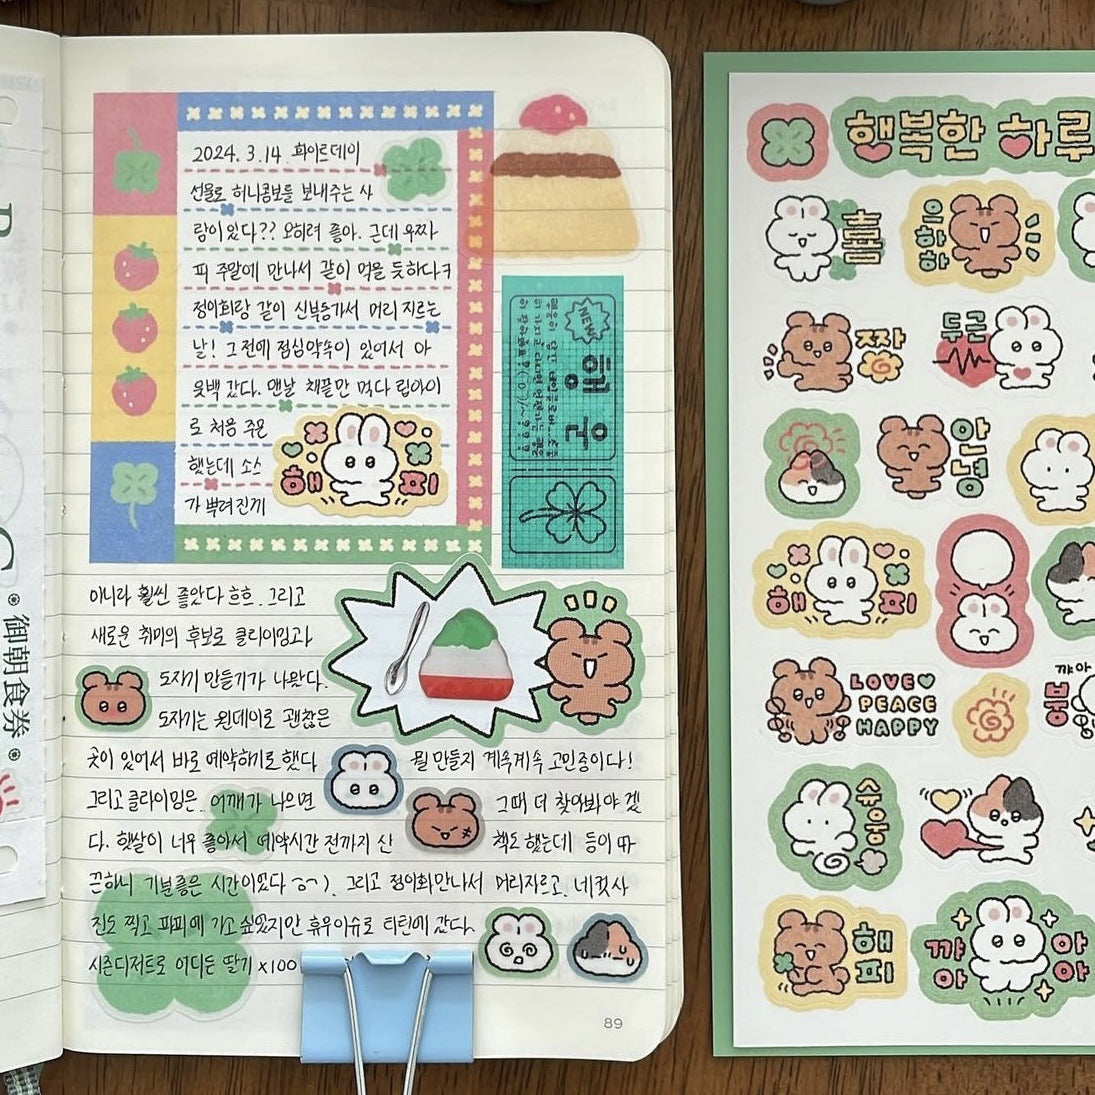 2024. 3.14. 화이트데이
선물로 허니콤보를 보내주는 사
람이 있다?? 오히려 좋아. 근데 유짜
피 주말에 만나서 같이 먹을 듯하다ㅋ
정이희랑 같이 신부등가서 머리 자르는
날! 그전에 점심약속이 있어서 아
웃백 갔다. 맨날 채끝만 먹다 립아이
로 처음 주문
했는데 소스
가 뿌려진게
해피
아니라 훨씬 좋았다 흐흐. 그리고
새로운 취미의 후보로 클라이밍과
도자기 만들기가 나왔다.
도자기는 원데이로 괜찮은
곳이 있어서 바로 예약하기로 했다
뭘 만들지 계속계속 고민중이다!
그리고 클라이밍은. 어깨가 나으면
그때 더 찾아봐야 겠
다. 햇살이 너무 좋아서 예약시간 전까지 산
책도 했는데 등이 따
끈하니 기분좋은 시간이었다. 그리고 정이희만나서 머리자르고, 네컷사
진도 찍고 파피에 가고 싶었지만 휴무이슈로 티틴에 갔다.
시즌디저트로 어디든 딸기 x100
89
NEW
행운
御朝食券
행복한 하루
喜
으하하
짜자
두근
안녕
해피
LOVE
PEACE
HAPPY
꺄아
붕
슈우웅
해피
꺄아
아아